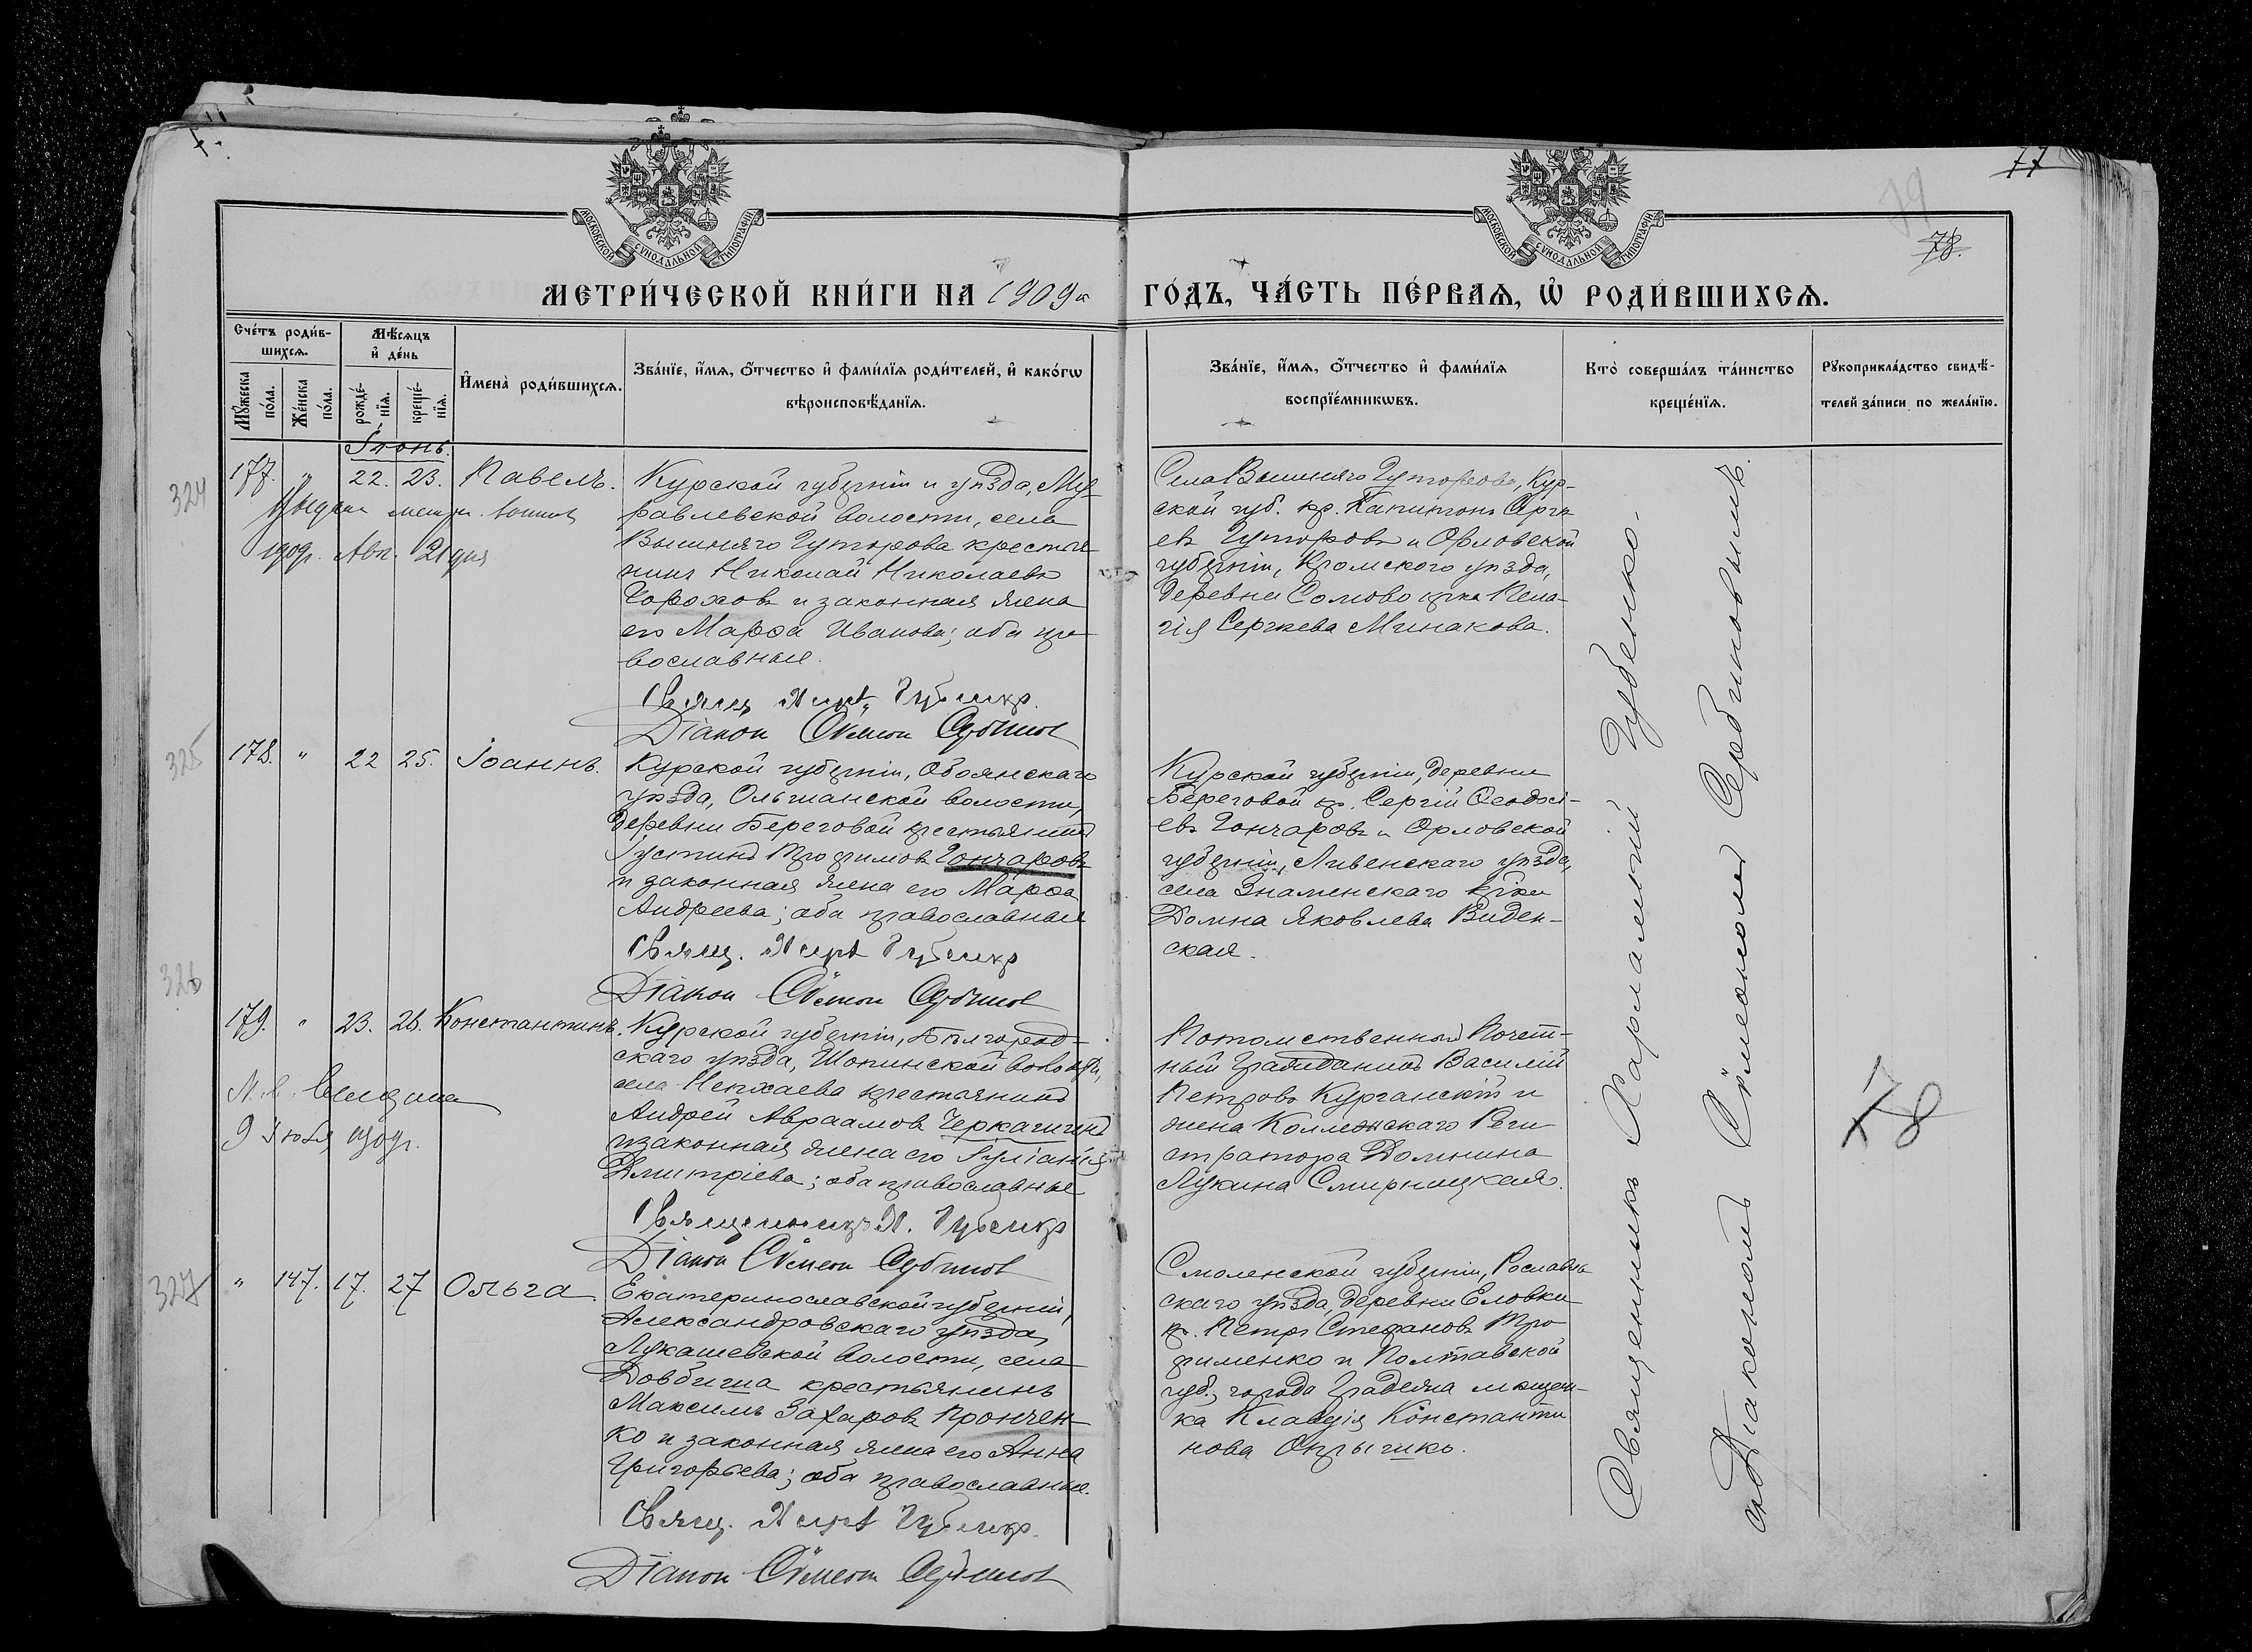 77
79
78.
МОСКОВСКОЙ СѴНОДАЛЬНОЙ ТИПОГРАФІИ
МОСКОВСКОЙ СѴНОДАЛЬНОЙ ТИПОГРАФІИ
МЕТРИ́ЧЕСКОЙ КНИ́ГИ НА 1909й ГО́ДЪ, ЧА́СТЬ ПЕ́РВАѦ, Ѡ҆ РОДИ́ВШИХСѦ.
Сче́тъ роди́в-
шихсѧ.
Мѣ́сѧцъ
и҆ де́нь
Мꙋ́жеска
по́ла.
Же́нска
по́ла.
рожде́-
нїѧ.
креще́-
нїѧ.
И҆мена̀ роди́вшихсѧ.
Зва́нїе, и҆́мѧ, ѻ҆́тчество и҆ фами́лїѧ роди́телей, и҆ како́гѡ
вѣроисповѣ́данїѧ.
Зва́нїе, и҆́мѧ, ѻ҆́тчество и҆ фами́лїѧ
воспрїе́мникѡвъ.
Кто̀ соверша́лъ та́инство
креще́нїѧ.
Рꙋкоприкла́дство свидѣ́-
телей за́писи по жела́нїю.
Іюнь.
324
177. " 22. 23. Павелъ.
1909г. Авг. 21 дня
Курской губерніи и уѣзда, Му-
равлевской волости, села
Вышняго Гуторова крестья-
нинъ Николай Николаевъ
Горохов и законная жена
его Марѳа Иванова; оба пра-
вославные.
Священ. Губенко.
Діакон Сѵмеон Сербинов
Села Вышняго Гуторова, Кур-
ской губ. кр. Капитонъ Сергѣ-
евъ Гуторовъ и Орловской
губерніи, Кромского уѣзда,
деревни Сомово кр-ка Пела-
гія Сергѣева Минакова.
325
178. " 22 25. Іоаннъ.
Курской губерніи, Обоянскаго
уѣзда, Ольшанской волости,
деревни Береговой крестьянинъ
Іустинъ Трофимовъ Гончаровъ
и законная жена его Марѳа
Андреева; оба православные
Священ. Губенко
Діакон Сѵмеон Сербинов
Курской губерніи, деревни
Береговой кр. Сергій Ѳеодосі-
евъ Гончаровъ и Орловской
губерніи, Ливенскаго уѣзда,
села Знаменскаго кр-ка
Домна Яковлева Виден-
ская.
326
179. " 23. 26. Константинъ.
9 Іюля 1909г.
Курской губерніи, Бѣлгород-
скаго уѣзда, Шопинской волости,
села Непхаева крестьянинъ
Андрей Авраамовъ Черкашинъ
и законная жена его Іуліанія
Дмитріева; оба православные
Священникъ Губенко
Діакон Сѵмеон Сербинов
Потомственный Почет-
ный Гражданинъ Василій
Петровъ Курганскій и
жена Коллежскаго Реги-
стратора Домнина
Лукина Смирницкая.
327
" 147. 17. 27 Ольга.
Екатеринославской губерніи,
Александровскаго уѣзда,
Лукашевской волости, села
Довбиша крестьянинъ
Максимъ Захаровъ Прончен-
ко и законная жена его Анна
Григорьева; оба православные.
Священ. Губенко.
Діакон Сѵмеон Сербинов
Смоленской губерніи, Рославль-
скаго уѣзда, деревни Еловки
кр. Петръ Стефановъ Тро-
фименко и Полтавской
губ., города Градижа мѣщан-
ка Клавдія Константи-
нова Опрышко.
Священникъ Харлампій Губенко
съ Діакономъ Сѵмеономъ Сербиновымъ.
78